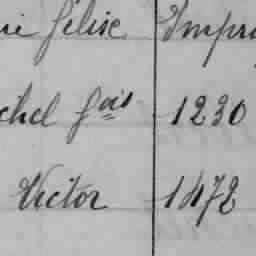 rie Félise Impr
chel fois 1230
Victor 1472